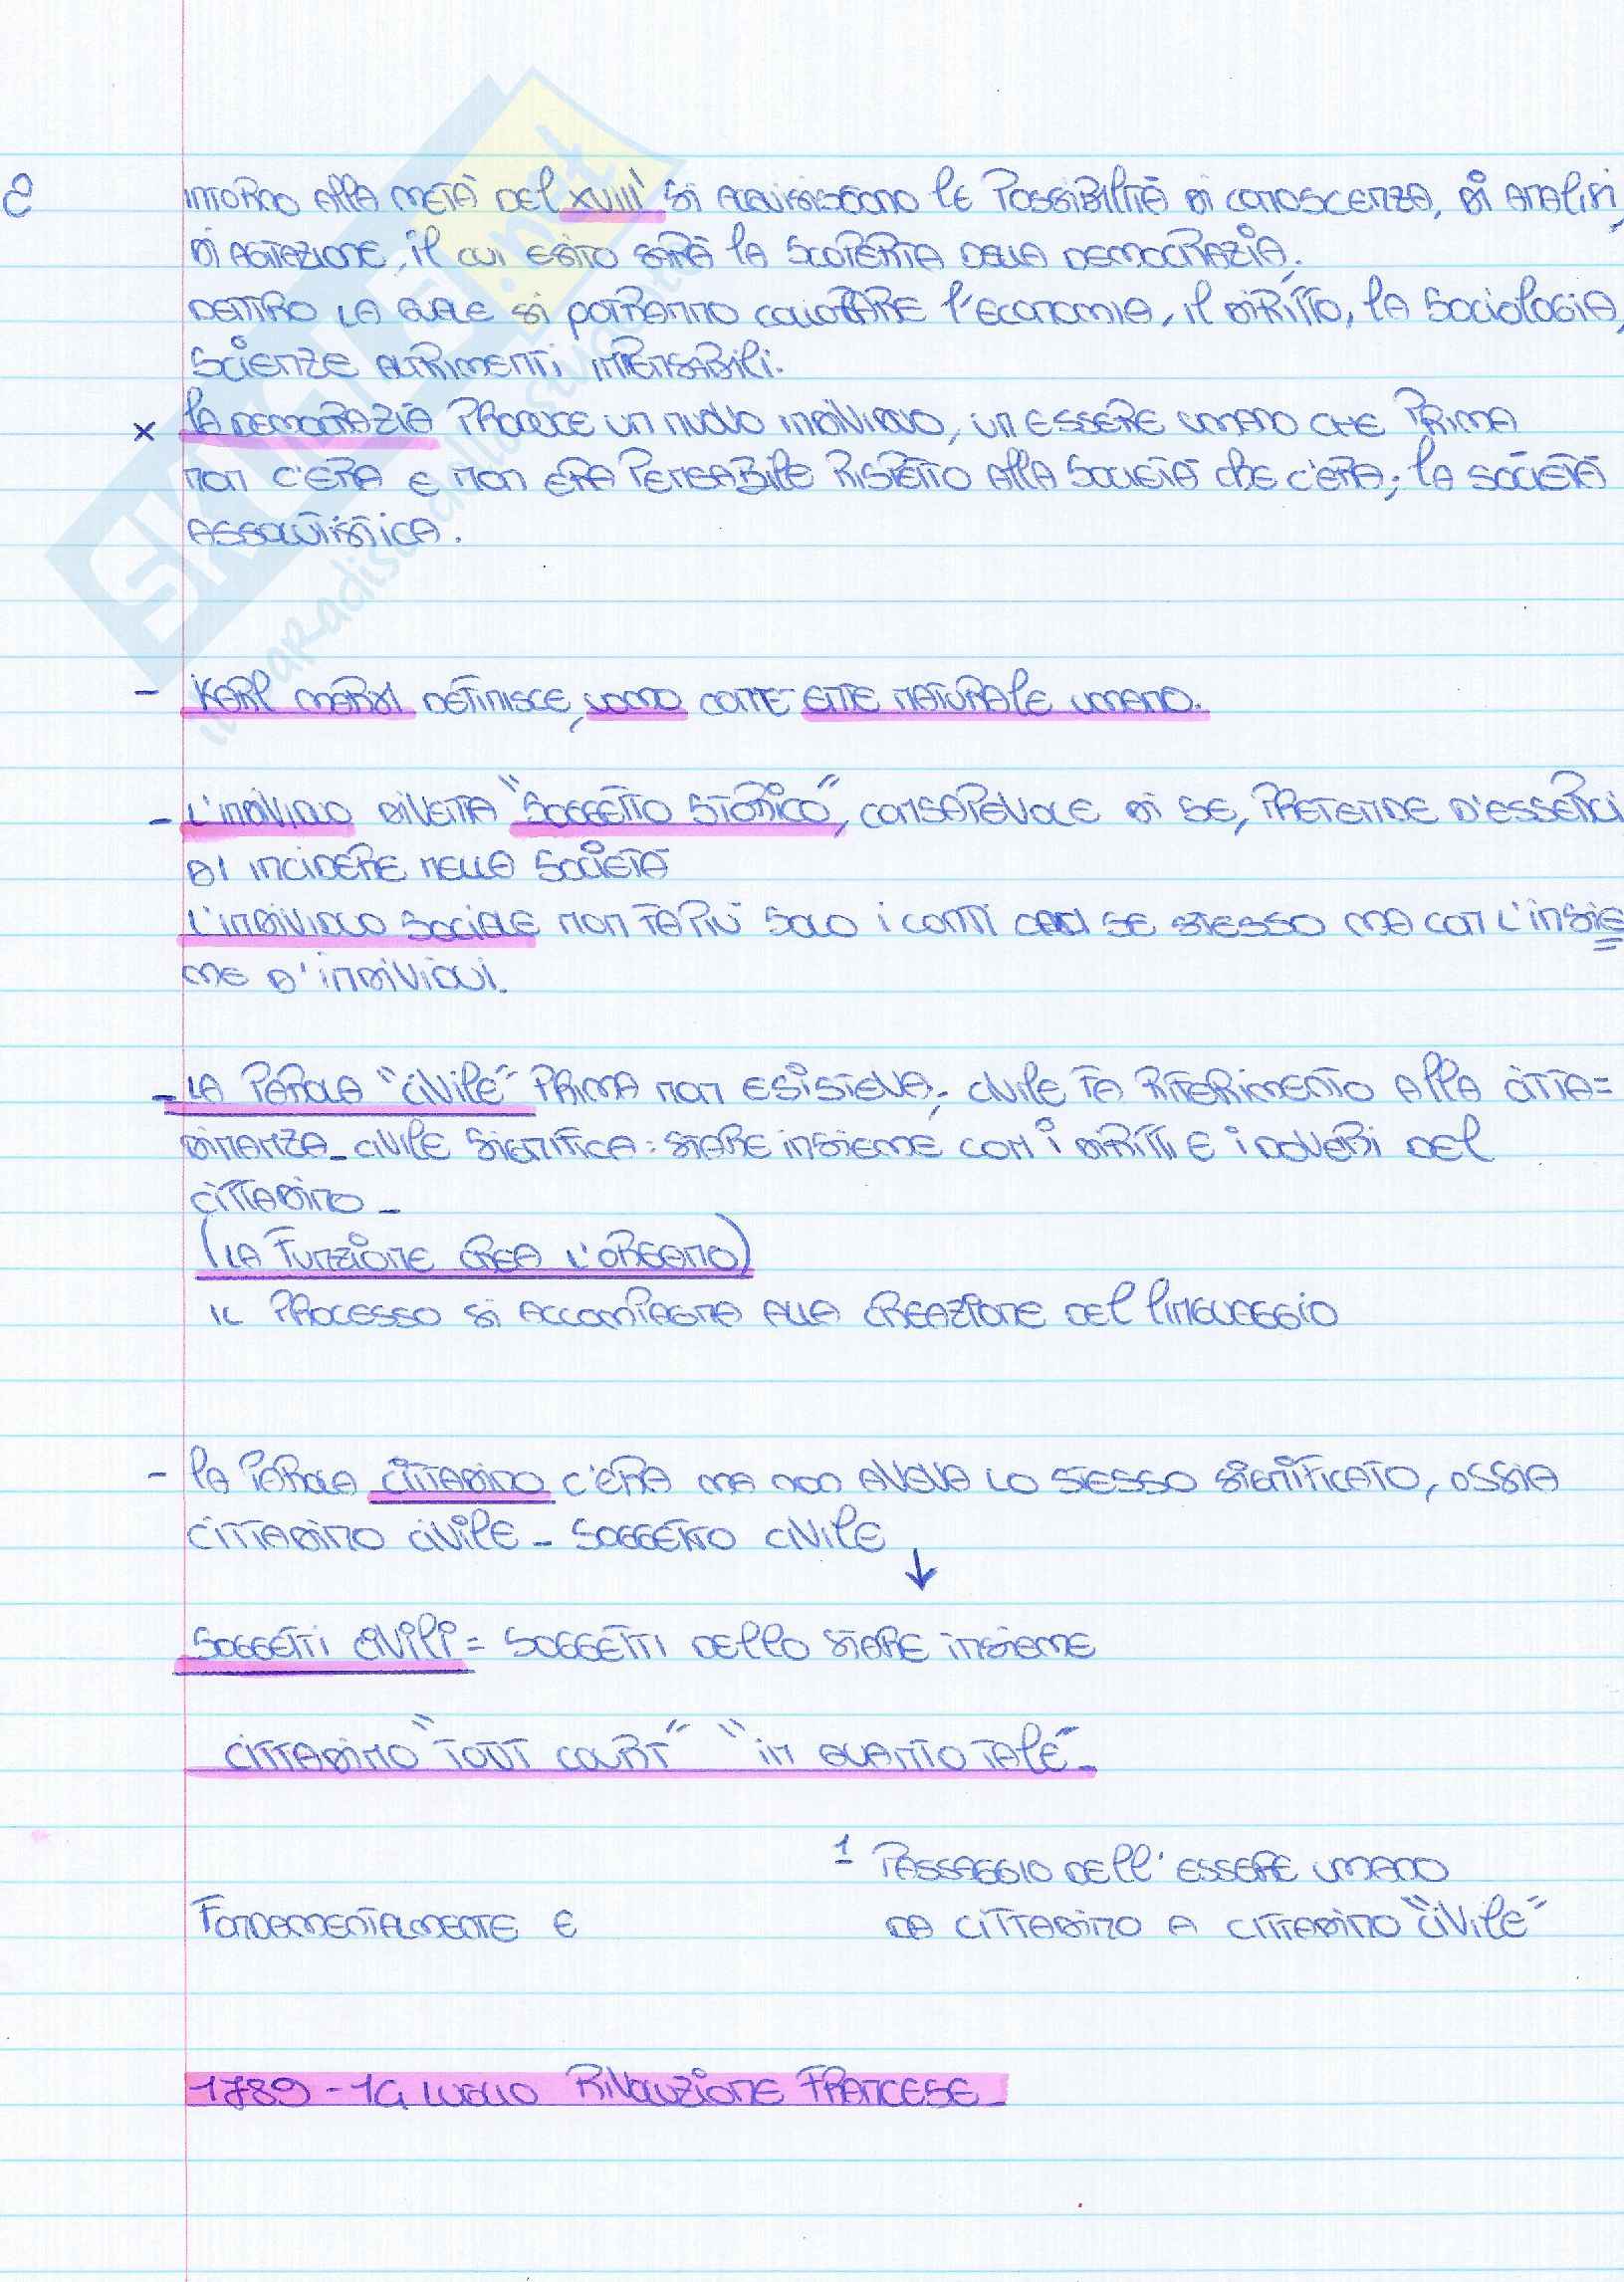 INTORNO ALLA METÀ DEL XVIIII Si ACQUISISCONO lE POSSIBILITÀ Di CONOSCENZA, Di ANALISI,
Di AGITAZIONE, il CUI ESITO SARÀ lA SCOPERTA DELLA DEMOCRAZIA.
DENTRO LA QUALE Si POTRANNO COLLOCARE l'ECONOMIA, il DIRITTO, lA SOCIOLOGIA,
SCIENZE ALTRIMENTI IMPENSABILI.
x lA DEMOCRAZIA PRODUCE UN NUOVO INDIVIDUO, UN ESSERE UMANO CHE PRIMA
NON C'ERA E NON ERA PENSABILE RISPETTO ALLA SOCIETÀ CHE C'ERA; lA SOCIETÀ
ASSOLUTISTICA.
- KARL MARX DEFINISCE, UOMO COME ENTE NATURALE UMANO.
- L'INDIVIDUO DIVENTA "SOGGETTO STORICO", CONSAPEVOLE DI SE, PRETENDE D'ESSERCI
DI INCIDERE NELLA SOCIETÀ
L'INDIVIDUO SOCIALE NON FA PIÙ SOLO I CONTI CON SE STESSO MA CON L'INSIE
ME D'INDIVIDUI.
- LA PAROLA "CIVILE" PRIMA NON ESISTEVA; CIVILE FA RIFERIMENTO ALLA CITTA=
DINANZA_CIVILE SIGNIFICA: STARE INSIEME CON I DIRITTI E I DOVERI DEL
CITTADINO _
(LA FUNZIONE CREA L'ORGANO)
IL PROCESSO SI ACCOMPAGNA ALLA CREAZIONE DEL LINGUAGGIO
- LA PAROLA CITTADINO C'ERA MA NON AVEVA LO STESSO SIGNIFICATO, OSSIA
CITTADINO CIVILE _ SOGGETTO CIVILE ↓
SOGGETTI CIVILI = SOGGETTI DELLO STARE INSIEME
CITTADINO "TOUT COURT" "IN QUANTO TALE"_
1 PASSAGGIO DELL'ESSERE UMANO
FONDAMENTALMENTE E DA CITTADINO A CITTADINO "CIVILE"
1789 - 14 LUGLIO RIVOLUZIONE FRANCESE_
SKUOLA.net
il paradiso dello studente